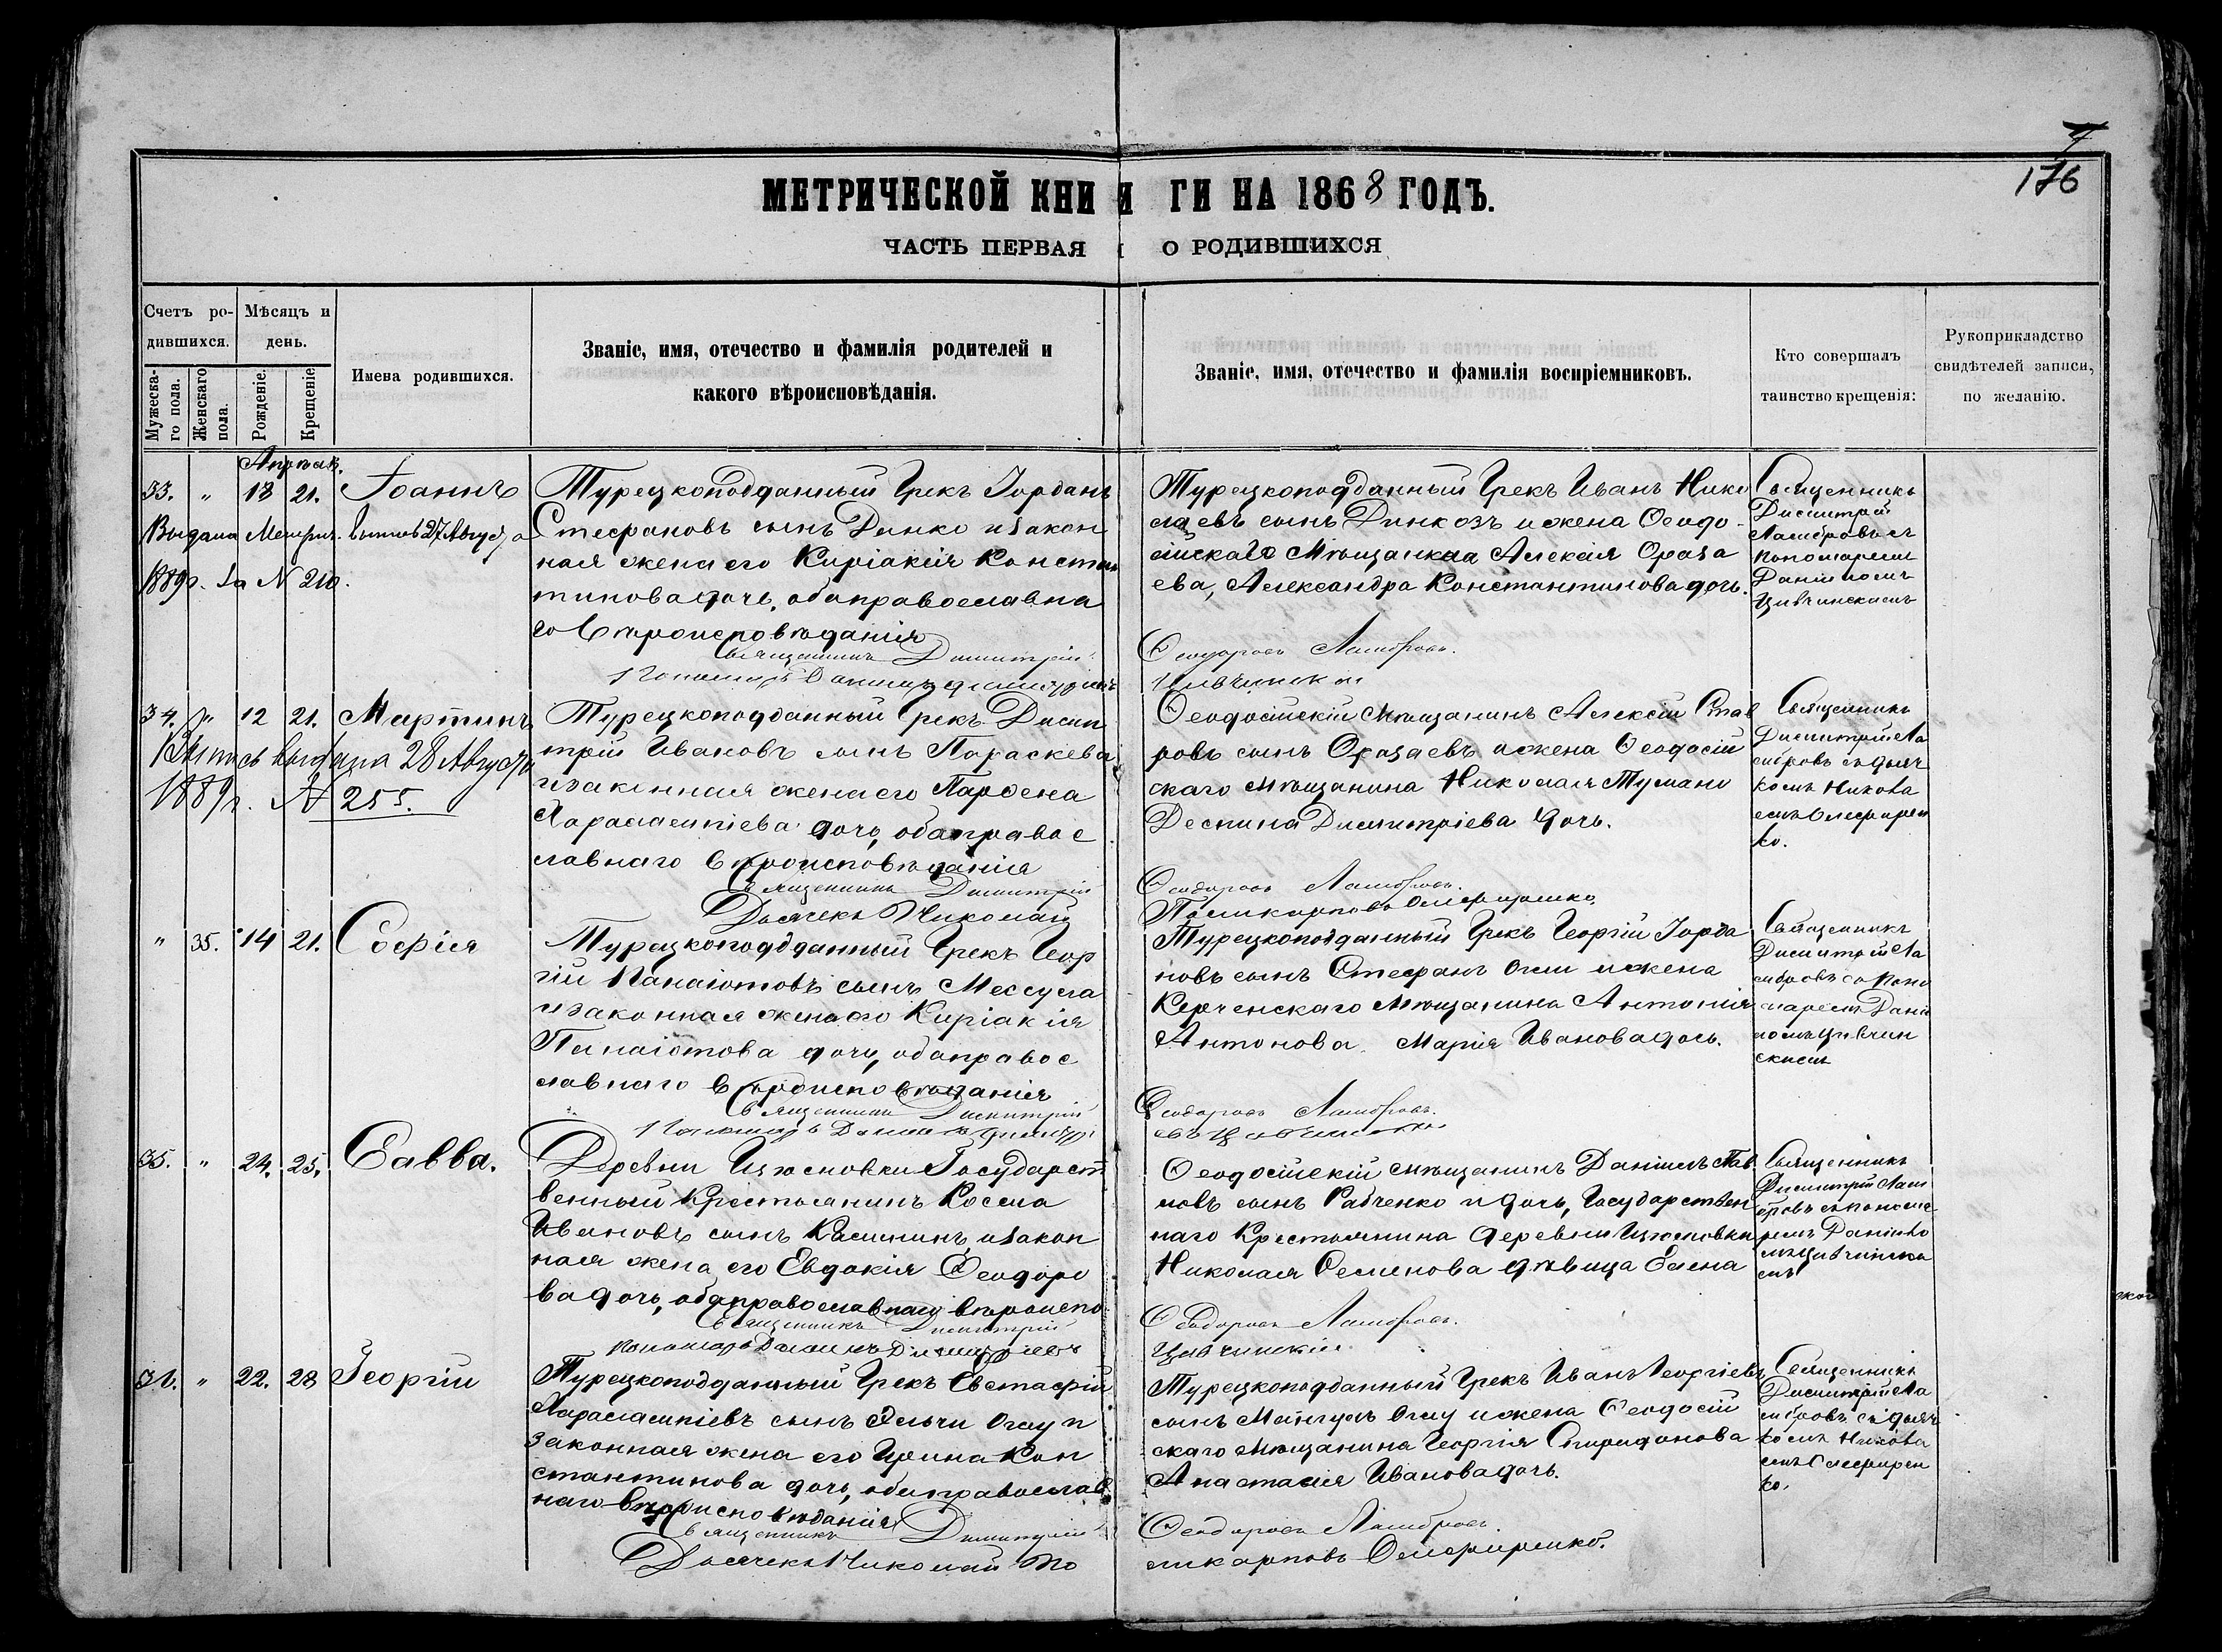 7
176
МЕТРИЧЕСКОЙ КНИ И ГИ НА 1868 ГОДЪ.
ЧАСТЬ ПЕРВАЯ О РОДИВШИХСЯ
Счетъ ро-
дившихся.
Мужеска-
го пола.
Женскаго
пола.
Мѣсяцъ и
день.
Рожденіе.
Крещеніе
Имена родившихся.
Званіе, имя, отечество и фамилія родителей и
какого вѣроисповѣданія.
Званіе, имя, отечество и фамилія воспріемниковъ.
Кто совершалъ
таинство крещенія:
Рукоприкладство
свидѣтелей записи,
по желанію.
33. " 18 21. Іоаннъ
27 Августа
1889г. За N 210.
Турецкоподданный Грекъ Іорданъ
Стефановъ сынъ Динко и закон
ная жена его Киріакія Констан
тинова дочь, оба православна
го Вѣроисповѣданія
Священникъ Димитрій
Турецкоподданный Грекъ Иванъ Нико
лаевъ сынъ Динкозъ и жена Ѳеодо-
сійскаго Мѣщанина Алексія
ева, Александра Константинова дочь.
Ѳеодоровъ Ламбровъ.
Цивчинскій
Священникъ
Димитрій
Ламбровъ съ
пономаремъ
Даніиломъ
Цивчинскимъ
34. " 12 21. Мартинъ
выдана 28 Августа
1889г. N 255.
Турецкоподданный Грекъ Дими
трій Ивановъ сынъ Параскева
и законная жена его Парѳена
Харалампіева дочь, оба правос
лавнаго Вѣроисповѣданія
Священникъ Димитрій
Дьячекъ Николай
Ѳеодосійскій мѣщанинъ Алексій
ровъ сынъ и жена Ѳеодосій
скаго мѣщанина Николая Тумано
Деспина Димитріева дочь.
Ѳеодоровъ Ламбровъ.
Священникъ
Димитрій Ла
мбровъ съ дьяч
комъ Никола
емъ
ко.
" 35. 14 21. Софія
Турецкоподданный Грекъ Геор
гій Панаіотовъ сынъ
и законная жена его Киріакія
Панаіотова дочь, оба правос
лавнаго вѣроисповѣданія
Священникъ Димитрій
Турецкоподданный Грекъ Георгій Іорда
новъ сынъ Стефанъ Оглы и жена
Керченскаго мѣщанина Антонія
Антонова Марія Иванова дочь.
Ѳеодоровъ Ламбровъ.
Священникъ
Димитрій Ла
мбровъ съ поно
маремъ Даніи
ломъ Цивчин
скимъ
35. " 24. 25. Савва.
Деревни Изюмовки Государст
венный Крестьянинъ Косма
Ивановъ сынъ и закон
ная жена его Евдокія Ѳеодоро
ва дочь, оба православнаго вѣроиспо
Священникъ Димитрій
Ѳеодосійскій мѣщанинъ Даніилъ Пав
ловъ сынъ Рабченко и дочь, Государствен
наго Крестьянина деревни Изюмовки
Николая Семенова дѣвица Елена
Ѳеодоровъ Ламбровъ.
Цивчинскій
Священникъ
Димитрій Лам
бровъ съ понома
ремъ Даніило
мъ Цивчински
мъ
22. 28 Георгій
Турецкоподданный Грекъ Евстафій
Харалампіевъ сынъ Оглу и
законная жена его Ирина Кон
стантинова дочь, оба православ
наго вѣроисповѣданія
Священникъ Димитрій
Дьячекъ Николай По
Турецкоподданный Грекъ Иванъ Георгіевъ
сынъ Оглу и жена Ѳеодосій
скаго мѣщанина Георгія Спиридонова
Анастасія Иванова дочь.
Ѳеодоровъ Ламбровъ.
ликарповъ
Священникъ
Димитрій Ла
мбровъ съ дьяч
комъ Никола
емъ
ко.